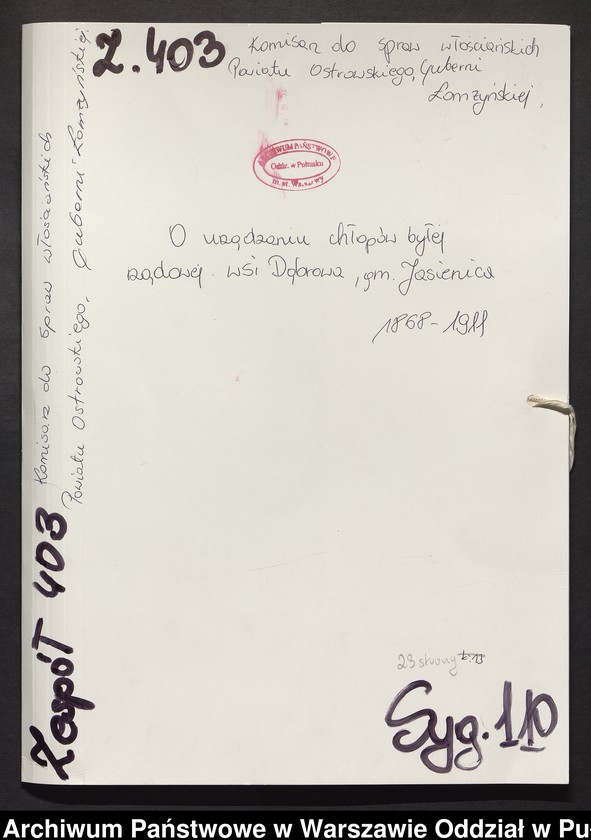 Z.403
Komisarz do spraw włościańskich
Powiatu Ostrowskiego, Guberni
Łomżyńskiej,
ARCHIWUM PAŃSTWOWE
Oddz. w Pułtusku
m. st. Warszawy
O urządzeniu chłopów byłej
rządowej wsi Dąbrowa, gm. Jasienica
1868-1911
23 strony
Syg. 110
Zespół 403
Komisarz do spraw włościańskich
Powiatu Ostrowskiego, Guberni Łomżyńskiej.
Archiwum Państwowe w Warszawie Oddział w Pu